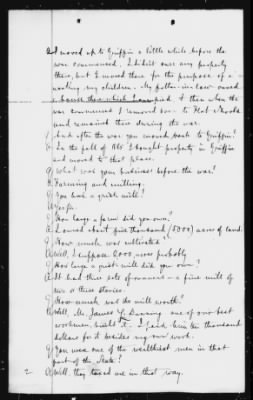 and moved up to Griffin a little while before the
war commenced. I didn't own any property
there, but I moved there for the purpose of
my children. My father-in-law owned
a house there which I occupied & then when the
war commenced I removed to Flat Shoals
and remained there during the war.
Q And after the war you moved back to Griffin?
A In the fall of 1865 I bought property in Griffin
and moved to that place.
Q What was your business before the war?
A Farming and milling.
Q You had a grist mill?
A Yes sir.
Q How large a farm did you own?
A I owned about five thousand (5000) acres of land.
Q How much was cultivated?
A Well, I suppose 2,000 acres probably
Q How large a grist mill did you own?
A It had three sets of runners - a fine mill of
two or three stories.
Q How much was the mill worth?
A Well, Mr. James L. Dunning one of our best
workmen built it. I paid him ten thousand
dollars for it besides my own work.
Q You were one of the wealthiest men in that
part of the State?
A Well, they taxed me in that way.
2